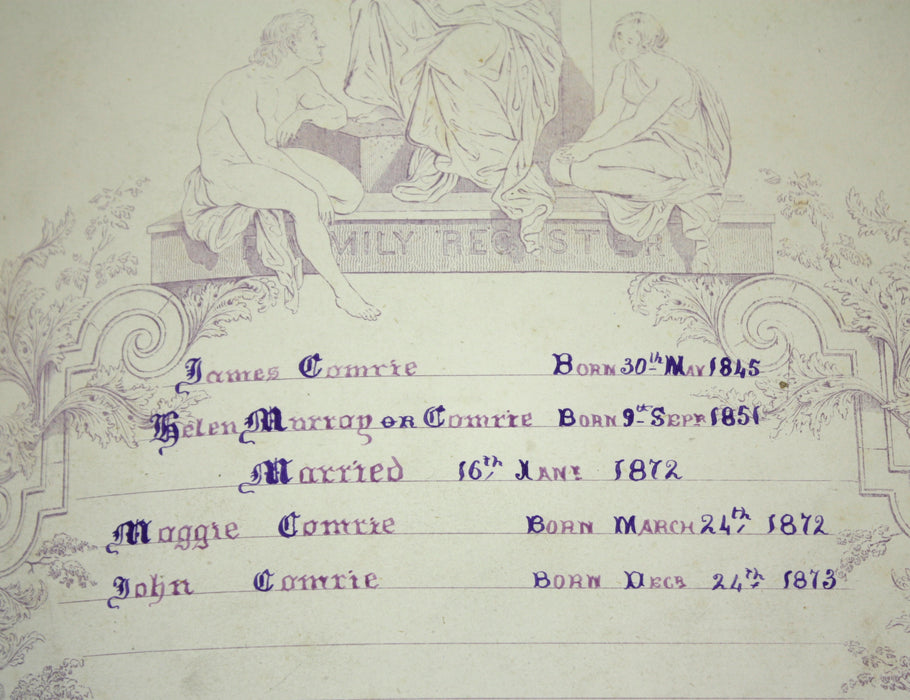 FAMILY REGISTER
James Comrie Born 30th May 1845
Helen Murray or Comrie Born 9th Sepr 1851
Married 16th Jany 1872
Maggie Comrie Born March 24th 1872
John Comrie Born Decr 24th 1873